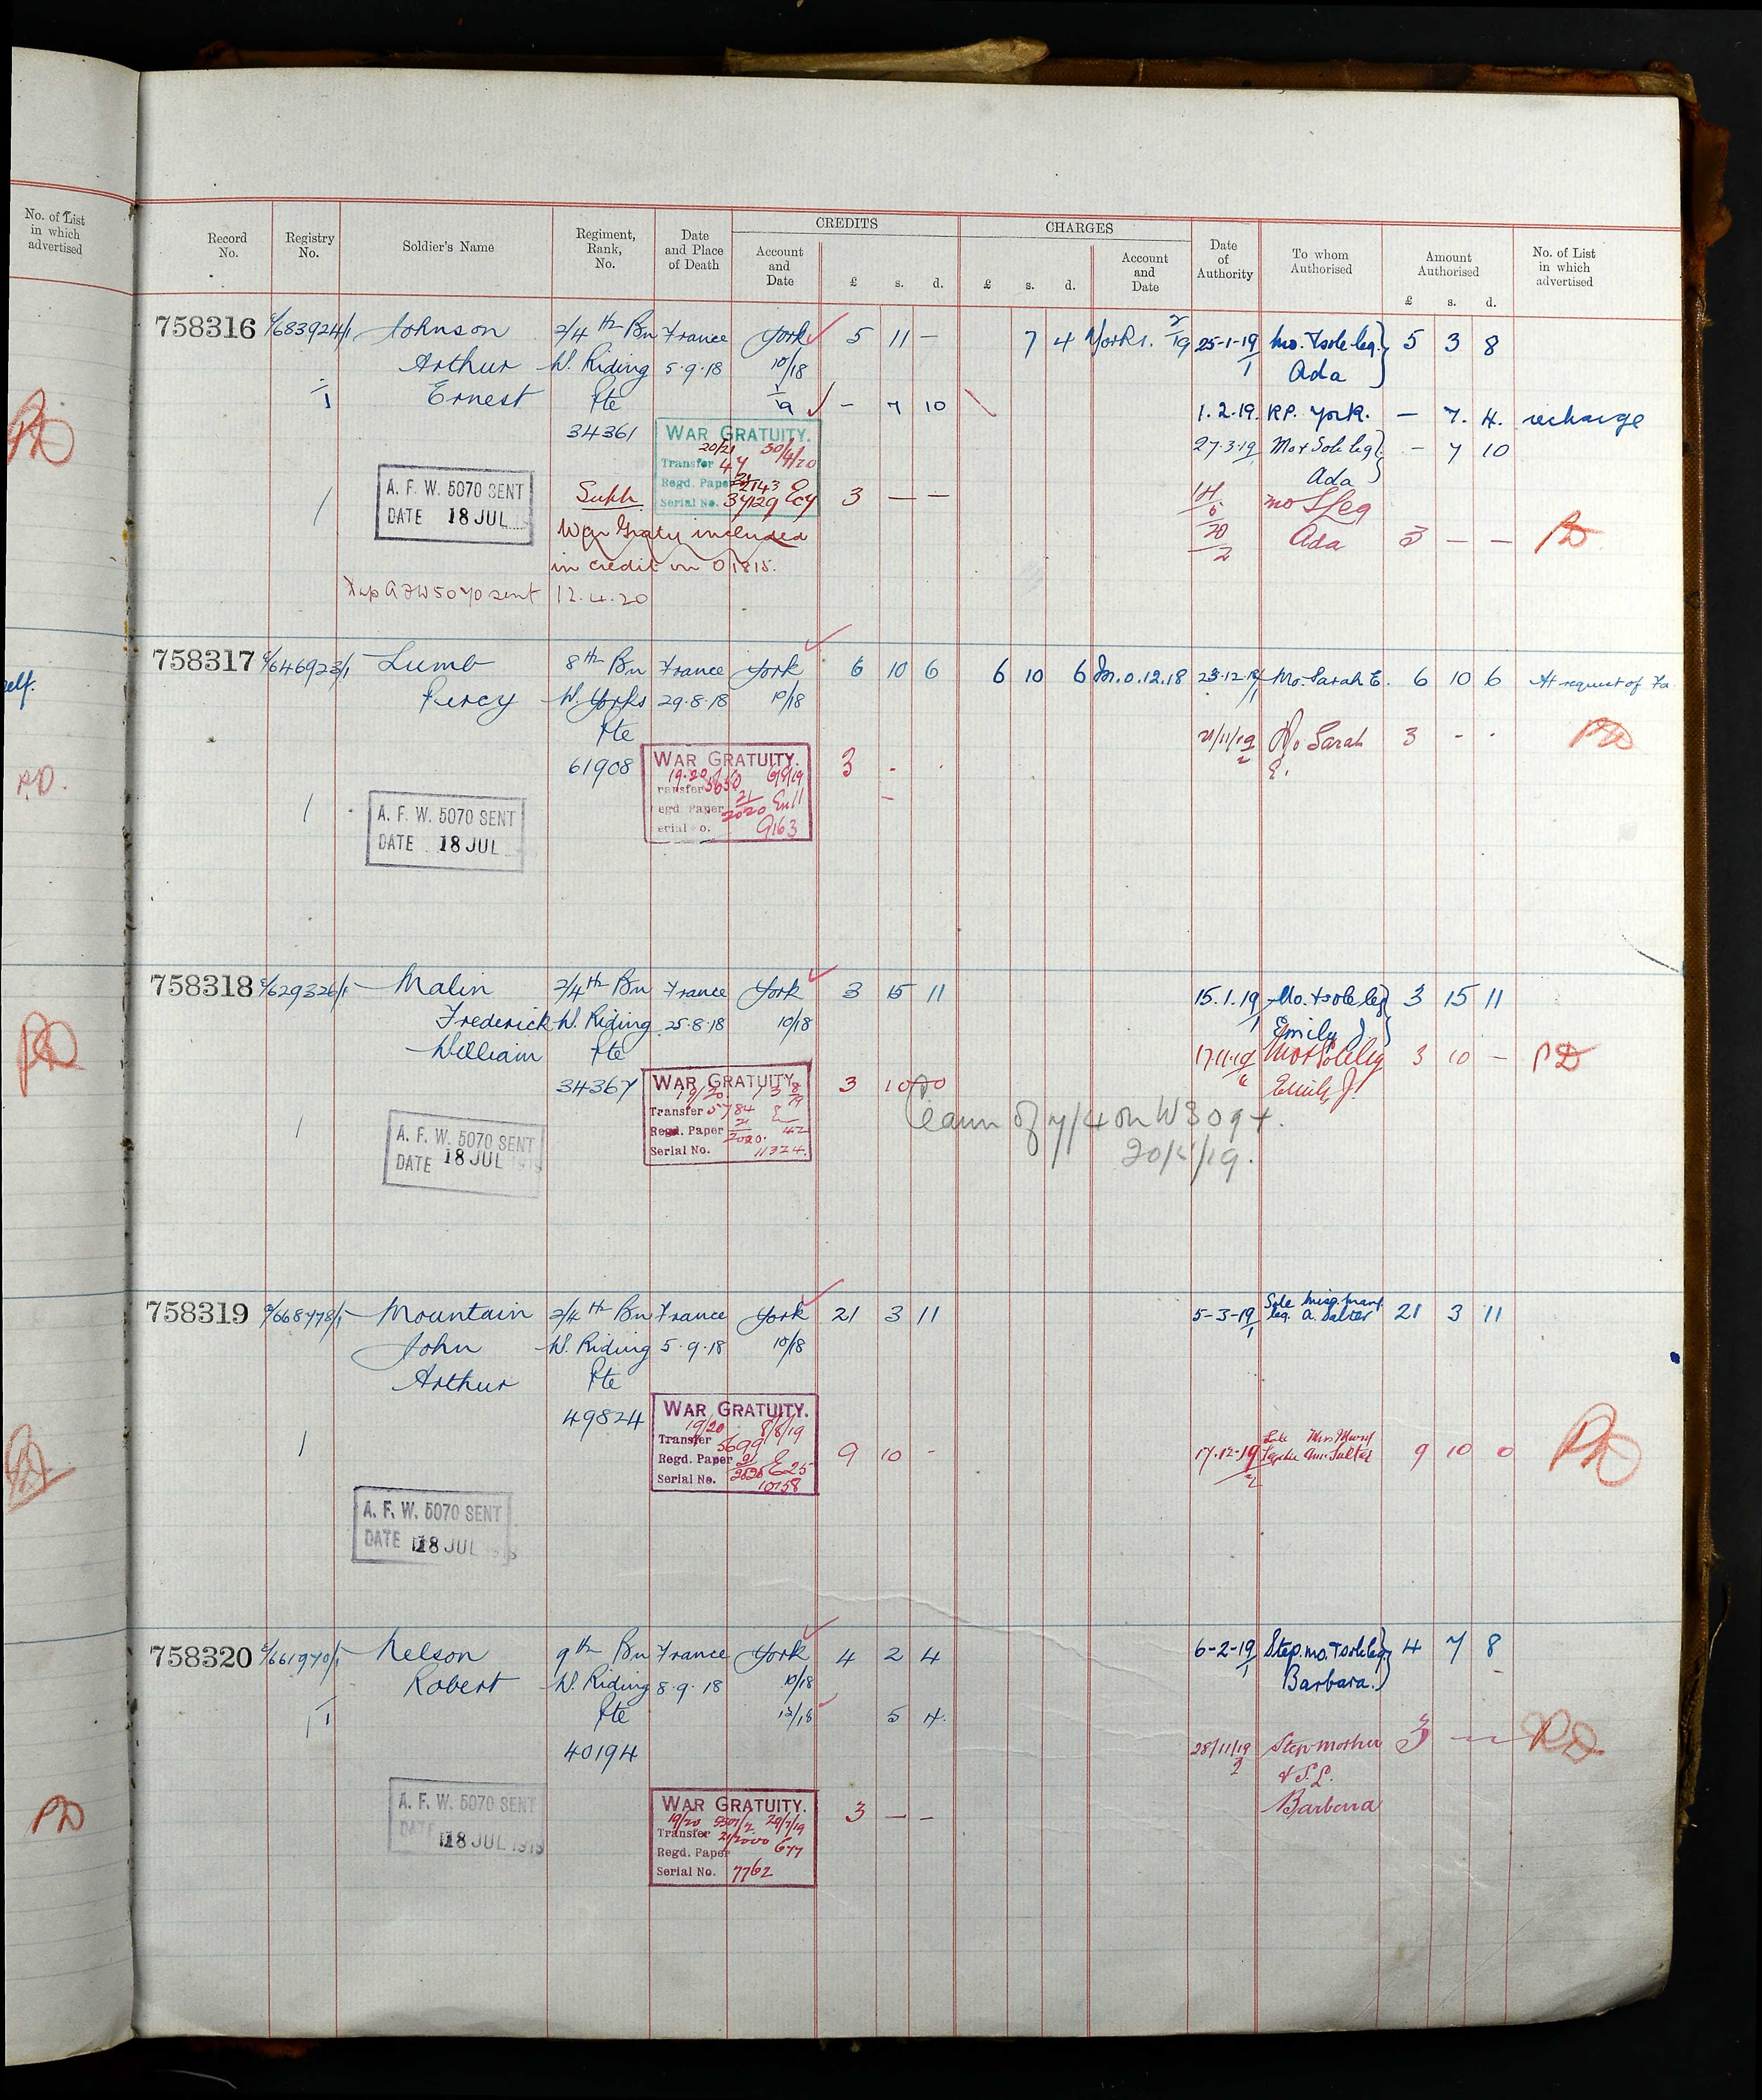 No. of List
in which
advertised
self.
RD.
CREDITS CHARGES
Record No. Registry No. Soldier's Name Regiment, Rank, No. Date and Place of Death Account and Date £ s. d. £ s. d. Account and Date Date of Authority To whom Authorised Amount Authorised £ s. d. No. of List in which advertised
758316 683924/1 Johnson 2/4th Bn France York 5 11 — 7 4 Yorks. 2/19 25-1-19 Mo. & sole leg. 5 3 8
Arthur W. Riding 5.9.18 10/18 1 Ada
1 Ernest Pte 1/19 — 7 10 1.2.19. RP. York. — 7. 4. recharge
34361 27.3.19 Mo & Sole leg — 7 10
Ada
WAR GRATUITY.
20/21 30/4/20
Transfer 44
Regd. Paper 2143
Serial No.
A. F. W. 5070 SENT
DATE 18 JUL
3 — —
mo S leg
Ada 3 — —
War Graty included
in credit on 01815.
AFW5070 sent 12.4.20
758317 646923/1 Lumb 8th Bn France York 6 10 6 6 10 6 12.18 23.12.18 Mo. Sarah E. 6 10 6 At request of Fa.
Percy W. Yorks 29.8.18 10/18
Pte 21/11/19 Mo Sarah 3 - -
61908 2 E.
WAR GRATUITY. 3 - -
19.20 6/8/19
Transfer 5650
Regd. Paper 21/2020
Serial No. 9163
A. F. W. 5070 SENT
DATE 18 JUL
758318 629326/1 Malin 2/4th Bn France York 3 15 11 15.1.19 Mo. & sole leg 3 15 11
Frederick W. Riding 25.8.18 10/18 1 Emily J.
William Pte 17.11.19 Mo & Sole leg 3 10 —
34367 Emily J.
WAR GRATUITY. 3 10 0
19/20
Transfer 5784
Regd. Paper 21/2020.
Serial No. 11324.
of 7/4 on W
A. F. W. 5070 SENT
DATE 18 JUL 1919
758319 668778/1 Mountain 2/4th Bn France York 21 3 11 5-3-19 Sole 21 3 11
John W. Riding 5.9.18 10/18 1 leg. A. Salter
Arthur Pte
49824
WAR GRATUITY. 9 10 -
19/20 8/8/19
Transfer 5699
Regd. Paper 21/2020 E25
Serial No. 10158
17.12.19 Sole 9 10 0
A. F. W. 5070 SENT
DATE 18 JUL
758320 661970/1 Nelson 9th Bn France York 4 2 4 6-2-19 Step. mo. & sole leg 4 7 8
Robert W. Riding 8.9.18 10/18 1 Barbara.
1 Pte 12/18 5 4.
40194 28/11/19 Step-mother 3 —
2 & S.L.
Barbara
WAR GRATUITY. 3 — —
19/20 5301/2 29/7/19
Transfer 21/2000 677
Regd. Paper
Serial No. 7762
A. F. W. 5070 SENT
DATE 18 JUL 1919